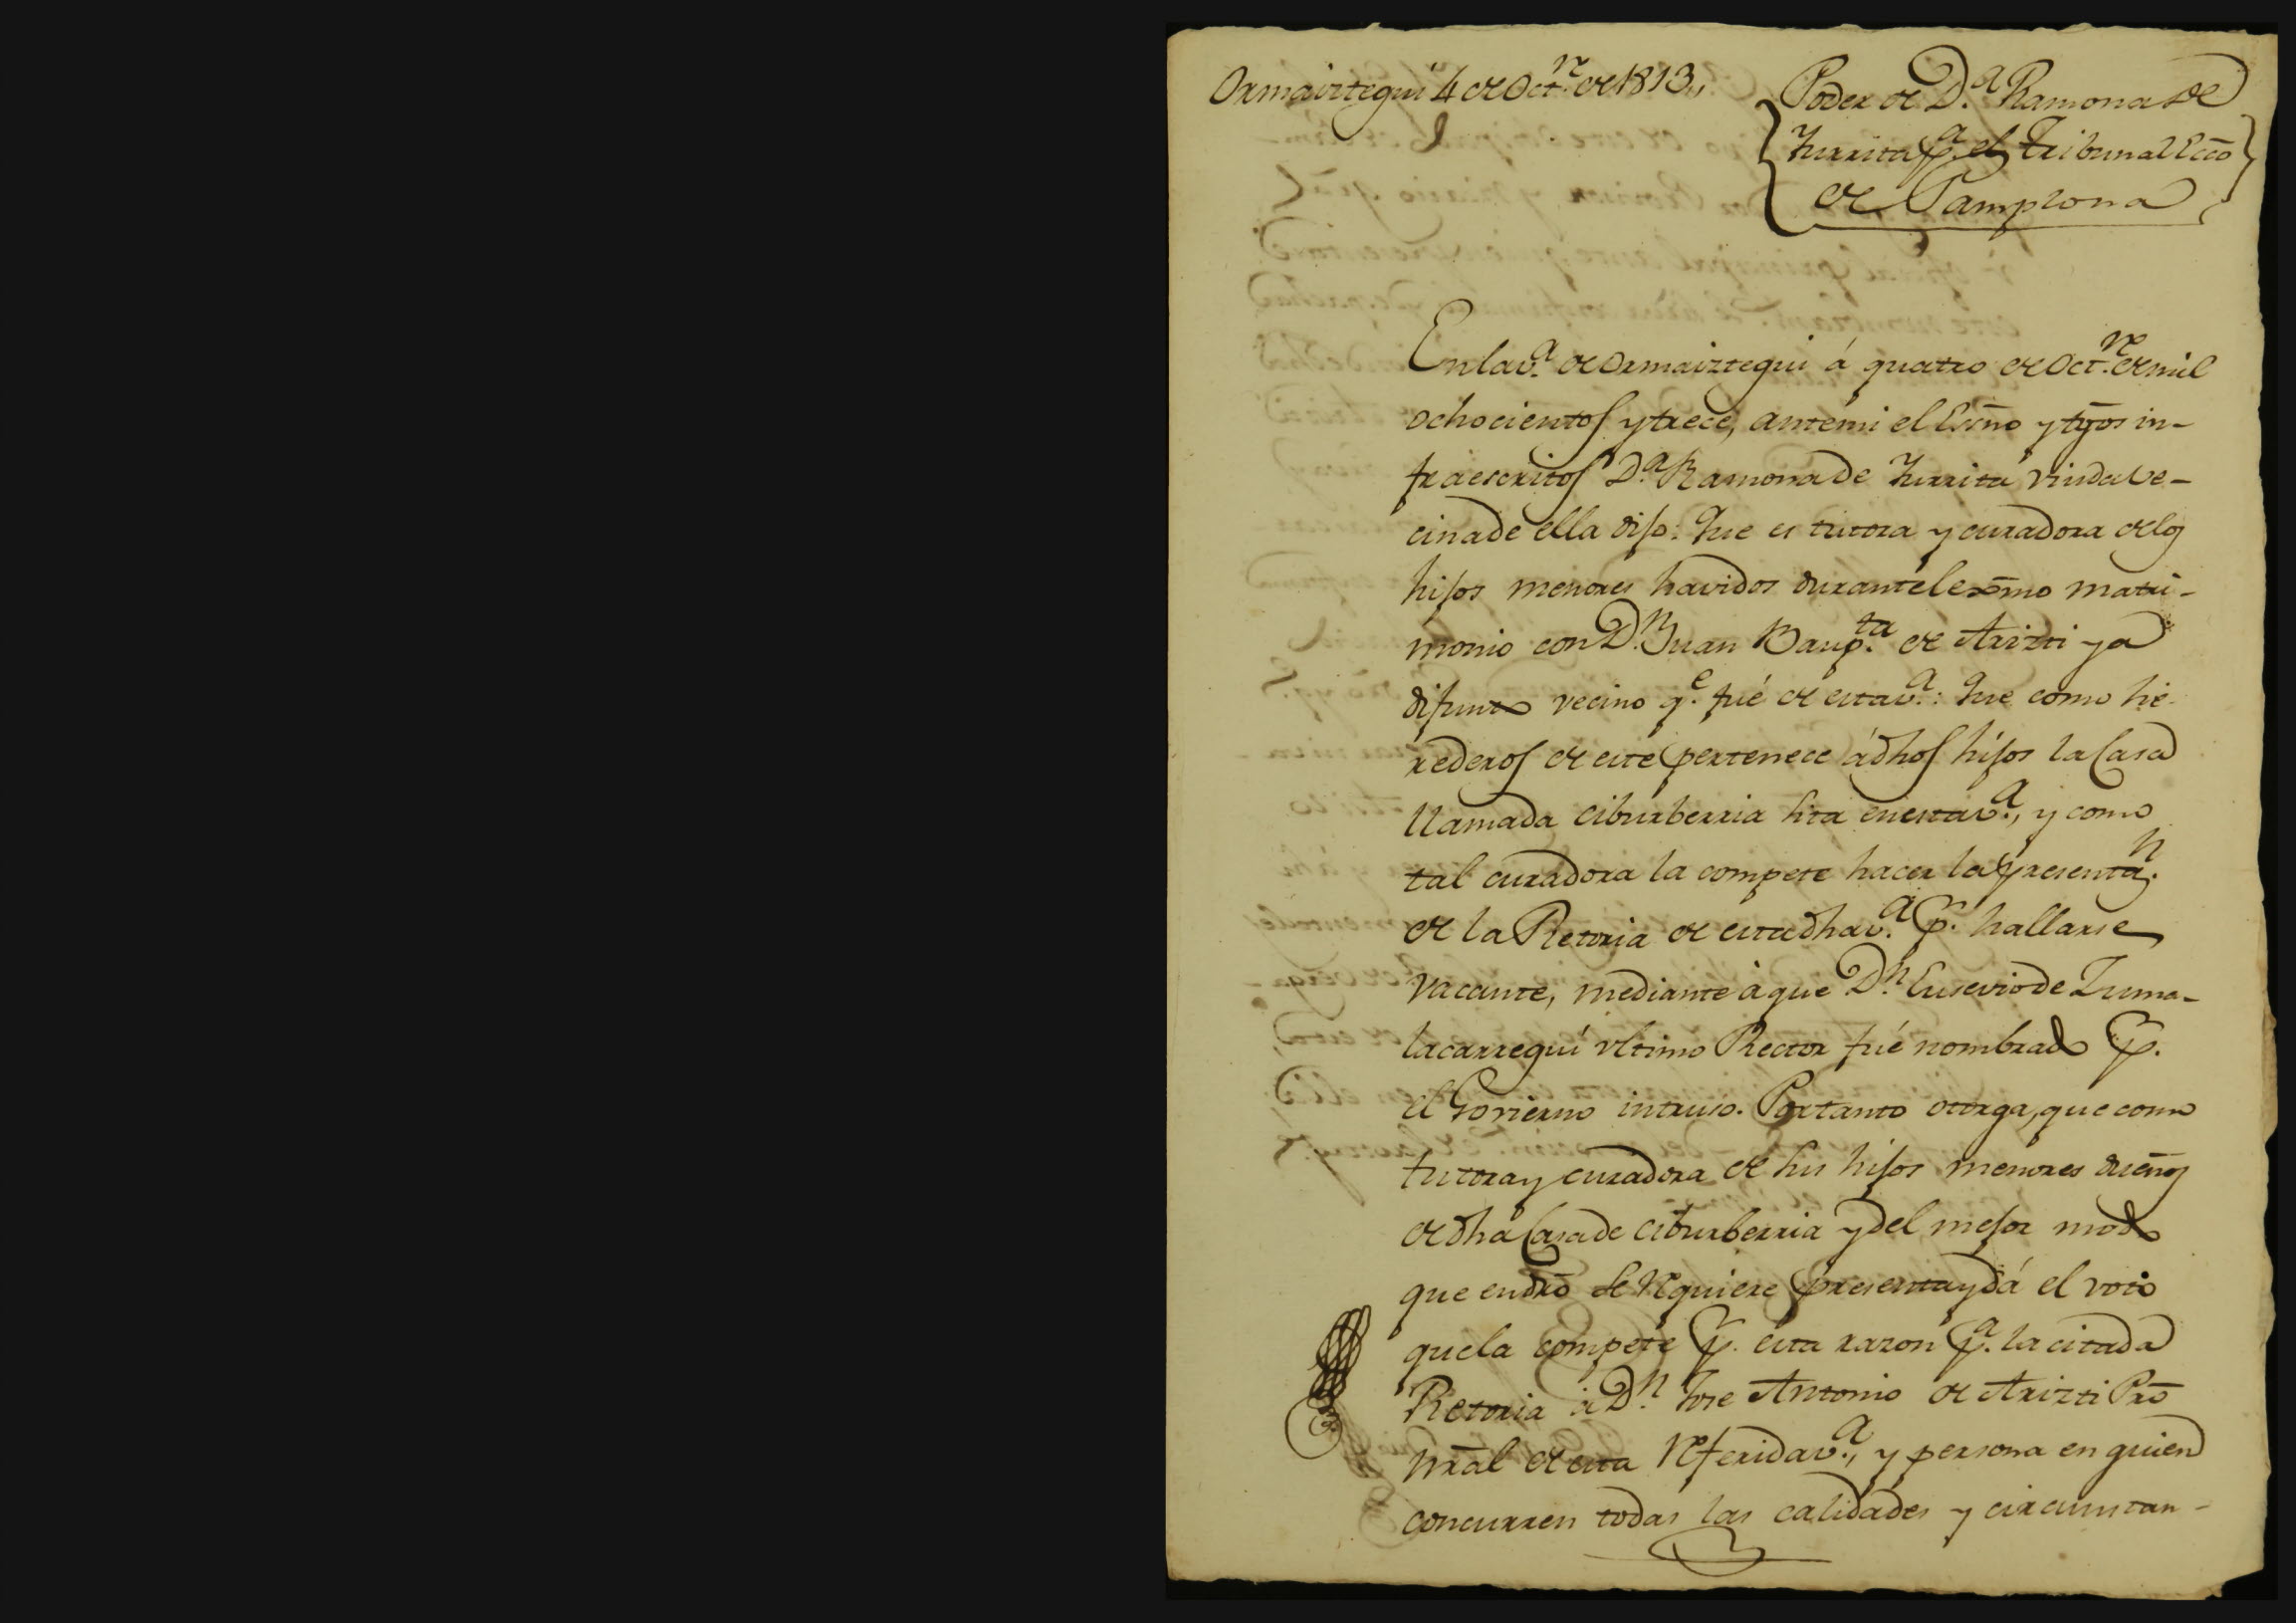 Ormaiztegui 4 de Oct.re de 1813,,
Poder de D.a Ramona de
Yurrita p.a el Tribunal Ecco
de Pamplona
En la v.a de Ormaiztegui á quatro de Oct.re de mil
ochocientos y trece, ante mi el Essno y tgos in-
fraescritos D.a Ramona de Yurrita viuda ve-
cina de ella dijo: Que es tutora y curadora de los
hijos menores havidos durante el exmo matri-
monio con D.n Juan Baup.ta de Arizti ya
difunto vecino q.e fué de esta v.a: Que como he-
rederos de este pertenece á dhos hijos la Casa
llamada Ciburberria sita en esta v.a, y como
tal curadora la compete hacer la presenta.n
de la Retoria de esta dha v.a p.r hallarse
vacante, mediante à que D.n Eusevio de Zuma-
lacarregui ultimo Rector fué nombrado p.r
el Govierno intruso. Por tanto otorga, que como
tutora y curadora de sus hijos menores dueños
de dha Casa de Ciburberria y del mejor modo
que en dro se requiere presenta y dá el voto
que la compete p.r esta razon p.a la citada
Retoria à D.n Jose Antonio de Arizti Pro
nral de esta referida v.a, y persona en quien
concurren todas las calidades y circunstan-